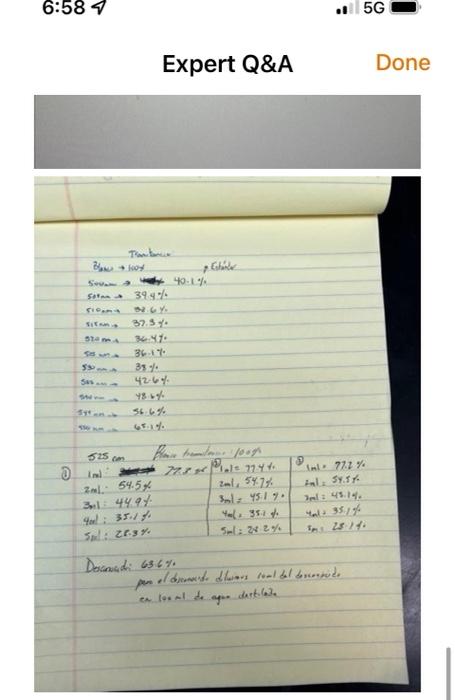 6:58
5G
Expert Q&A
Done
Blanco → 100%
Estándar
40.1%
505 nm → 39.4%
510 nm → 38.6%
515 nm → 37.3%
520 nm → 36.4%
525 nm → 36.1%
530 nm → 38%
42.6%
48.6%
56.6%
65.1%
525 nm Blanco transmitancia: 100%
① 1ml: 77.3
2ml: 54.5%
3ml: 44.9%
4ml: 35.1%
5ml: 28.3%
② 1ml = 77.4%
2ml = 54.7%
3ml = 45.1%
4ml = 35.1%
5ml = 28.2%
③ 1ml = 77.2%
2ml = 54.5%
3ml = 45.1%
4ml = 35.1%
28.1%
Desconocido: 63.6%
para el desconocido diluimos 10ml del desconocido
en 100 ml de agua destilada